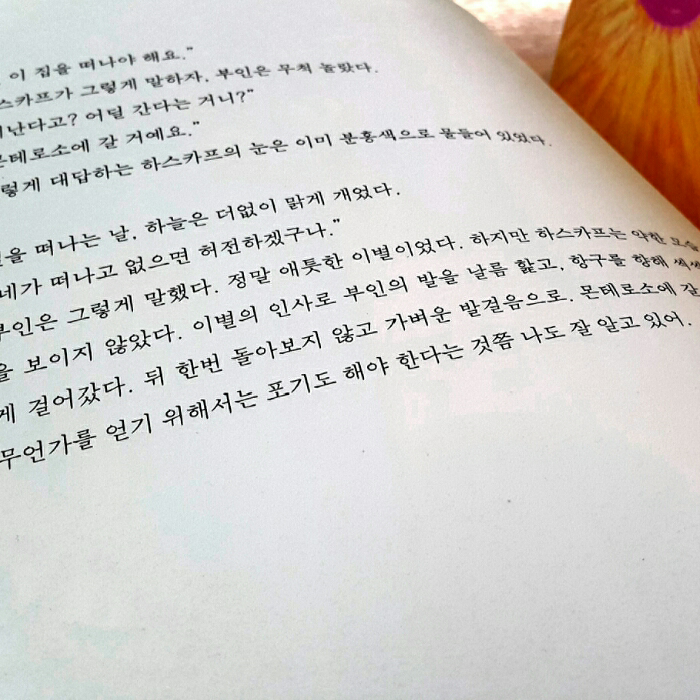 이 집을 떠나야 해요."
스카프가 그렇게 말하자, 부인은 무척 놀랐다.
난다고? 어딜 간다는 거니?"
몬테로소에 갈 거예요."
렇게 대답하는 하스카프의 눈은 이미 분홍색으로 물들어 있었다.
을 떠나는 날, 하늘은 더없이 맑게 개었다.
네가 떠나고 없으면 허전하겠구나."
부인은 그렇게 말했다. 정말 애틋한 이별이었다. 하지만 하스카프는 약한 모습
을 보이지 않았다. 이별의 인사로 부인의 발을 날름 핥고, 항구를 향해 씩씩
게 걸어갔다. 뒤 한번 돌아보지 않고 가벼운 발걸음으로. 몬테로소에 갈
무언가를 얻기 위해서는 포기도 해야 한다는 것쯤 나도 잘 알고 있어.